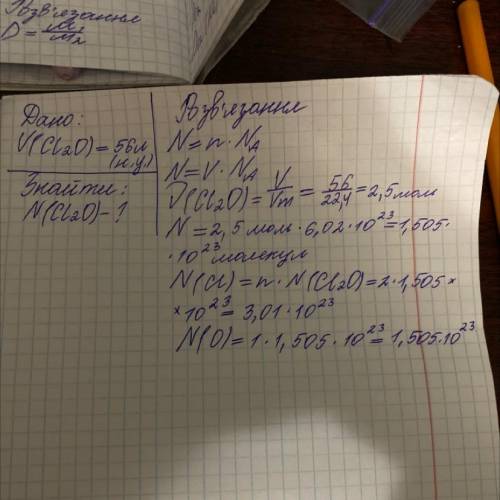 Розв'язання
D = M₁/M₂
Дано:
V(Cl₂O)=56л
(н.у)
Знайти:
N(Cl₂O)-?
Розв'язання
N=n·Nₐ
N=V·Nₐ
ν(Cl₂O)=V/Vm=56/22,4=2,5моль
N=2,5моль·6,02·10²³=1,505·
·10²³молекул
N(Cl)=n·N(Cl₂O)=2·1,505×
×10²³=3,01·10²³
N(O)=1·1,505·10²³=1,505·10²³